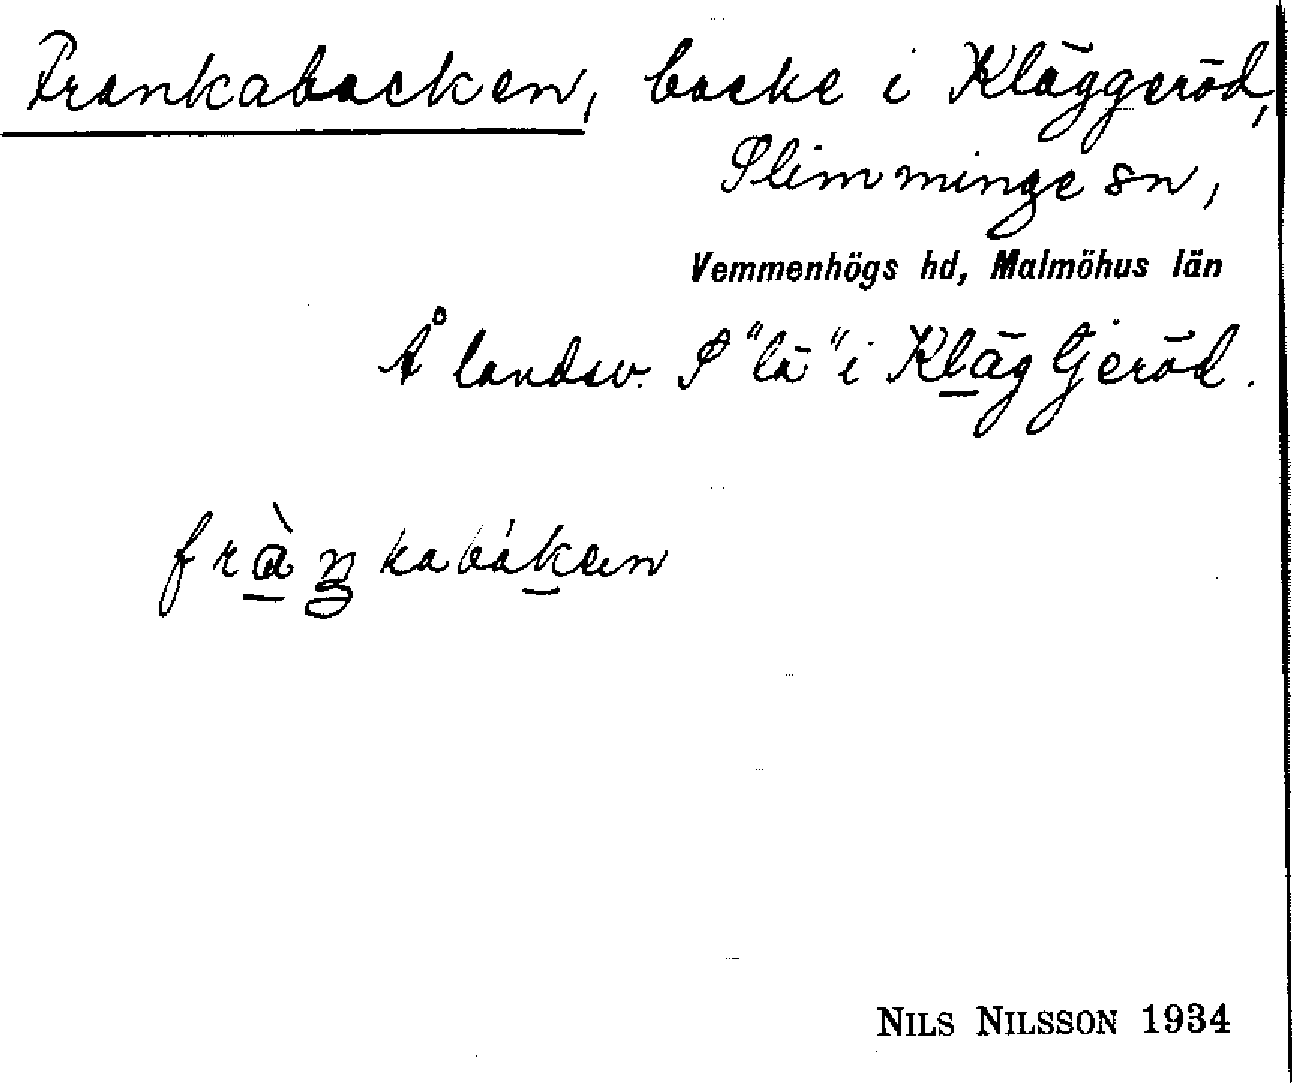 Frankabacken, backe i Kläggeröd,
Slimminge sn,
Vemmenhögs hd, Malmöhus län
Å landsv. S "lä" i Kläggeröd.
fràŋkabáken
NILS NILSSON 1934